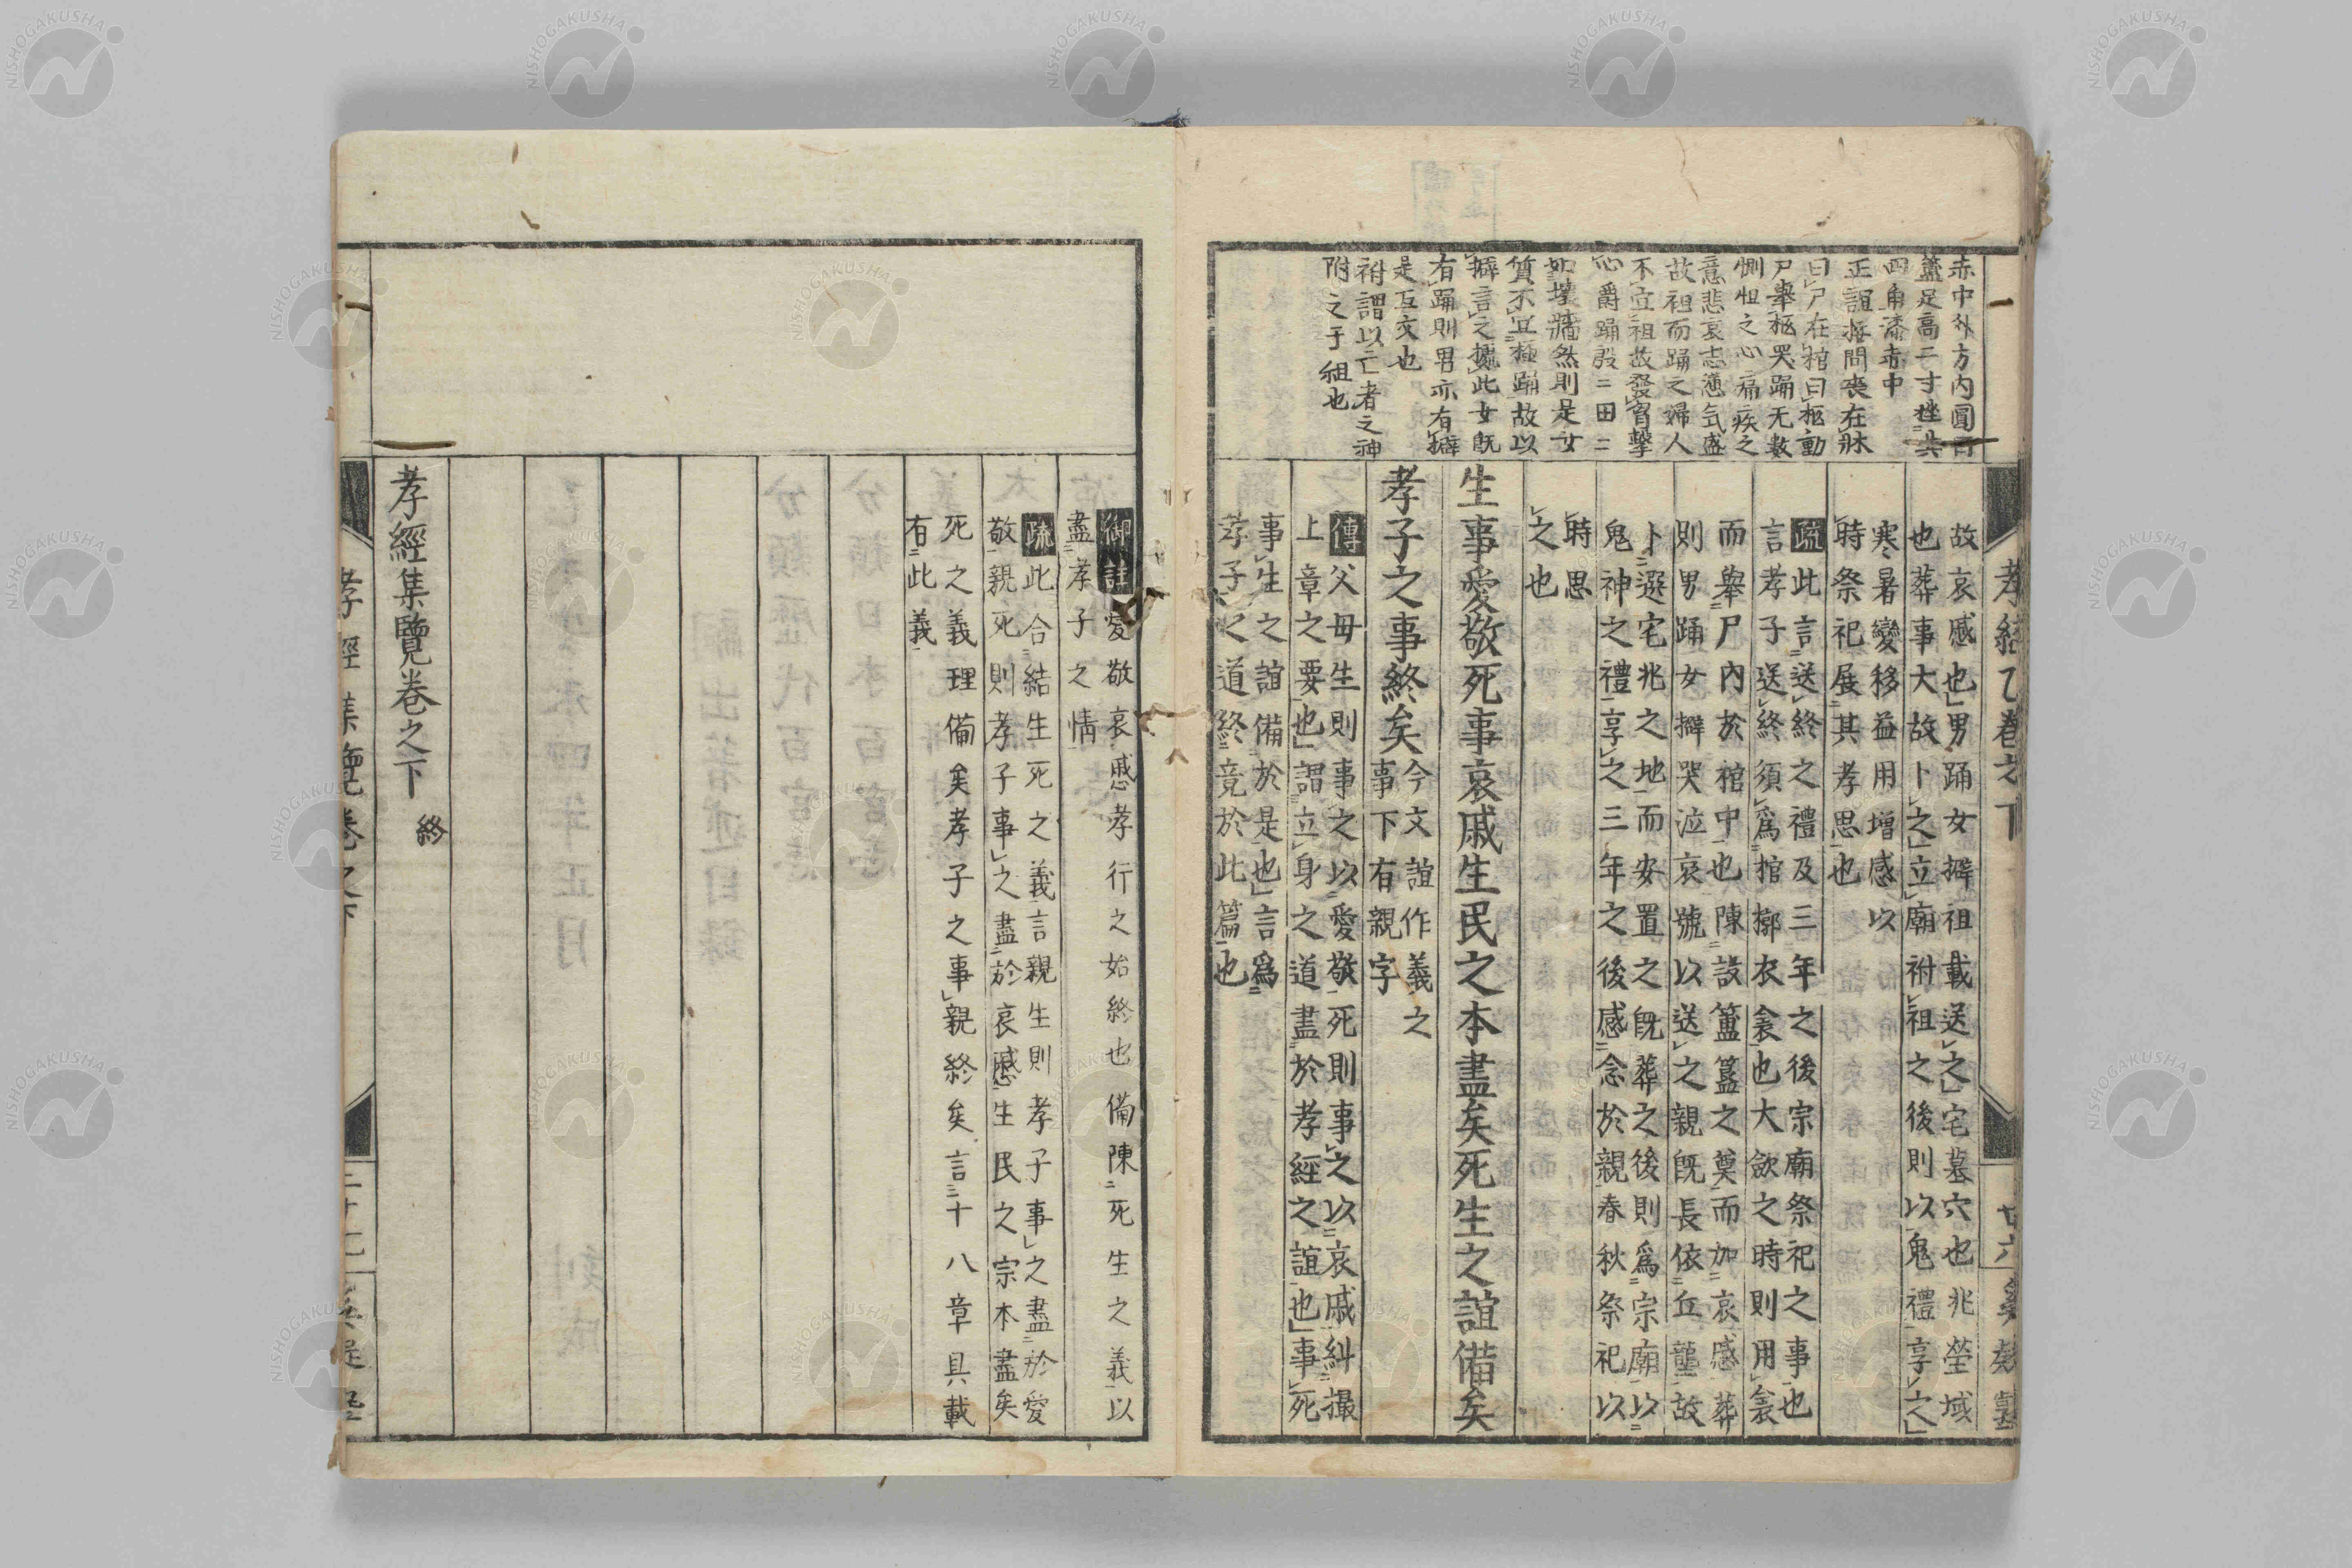 赤中外方内圓
蓋足高二寸
四角漆赤中
正誼按問喪在牀
曰尸在棺曰柩動
尸擧柩哭踊无數
惻怛之心痛疾之
意悲哀志懣气盛
故袒而踊之婦人
不宜袒故發胷擊
心爵踊殷〻田〻
如壞牆然則是女
質不宜極踊故以
擗言之據此女旣
有踊則男亦有擗
是互文也
祔謂以亡者之神
附之于祖也
故哀慼也男踊女擗祖載送之宅墓穴也兆塋域
也葬事大故卜之立廟祔祖之後則以鬼禮享之
寒暑變移益用增感以
時祭祀展其孝思也
疏此言送終之禮及三年之後宗廟祭祀之事也
言孝子送終須爲棺椁衣衾也大歛之時則用衾
而擧尸內於棺中也陳設簠簋之奠而加哀慼葬
則男踊女擗哭泣哀號以送之親旣長依丘壟故
卜選宅兆之地而安置之旣葬之後則爲宗廟以
鬼神之禮享之三年之後感念於親春秋祭祀以
時思
之也
生事愛敬死事哀戚生民之本盡矣死生之誼備矣
孝子之事終矣
今文誼作義之
事下有親字
傳父母生則事之以愛敬死則事之以哀戚糾撮
上章之要也謂立身之道盡於孝經之誼也事死
事生之誼備於是也言爲
孝子之道終竟於此篇也
孝經 卷之下
廿六
御註愛敬哀慼孝行之始終也備陳死生之義以
盡孝子之情
疏此合結生死之義言親生則孝子事之盡於愛
敬親死則孝子事之盡於哀慼生民之宗本盡矣
死之義理備矣孝子之事親終矣言十八章具載
有此義
孝經集覽卷之下 終
孝經集覽卷之下
二十七